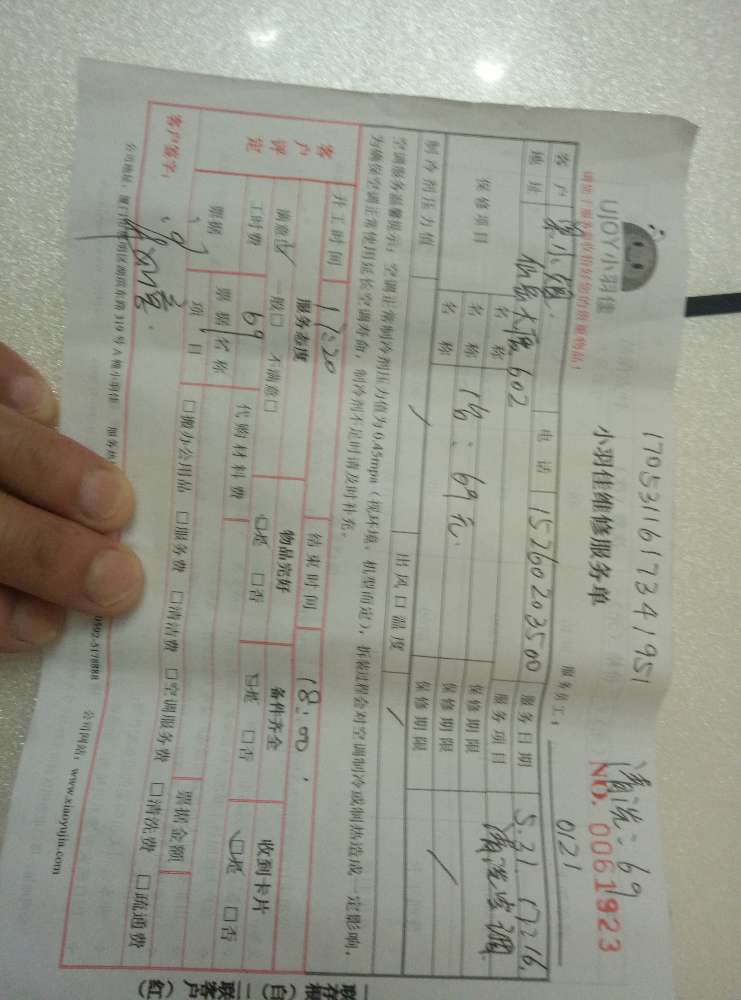 170531161734 1951
清洗：69
UJOY小羽佳
小羽佳维修服务单
NO. 0061923
服务员工： 0121
客户 小姐 电话 15260203500 服务日期 5.31 17:16
地址 仙岳大厦602 服务项目 清洗空调
保修项目 名称 保修期限
名称 1台：69元 保修期限
名称 保修期限
制冷剂压力值 / 出风口温度 /
空调服务温馨提示：空调正常制冷剂压力值为0.45mpa（视环境、机型而定），拆装过程会对空调制冷或制热造成一定影响，
为确保空调正常使用延长空调寿命，制冷剂不足时请及时补充。
开工时间 17:20 结束时间 18:00
客户评定 服务态度 物品完好 备件齐全 收到卡片
满意☑ 一般□ 不满意□ ☑是 □否 ☑是 □否 ☑是 □否
工时费 69 代购材料费
票据 票据名称 票据金额
项目 □搬办公用品 □服务费 □清洁费 □空调服务费 □清洗费 □疏通费
客户签字：
0592-5178888 公司网站：www.xiaoyujia.com
一联存根（白）
二联客户（红）